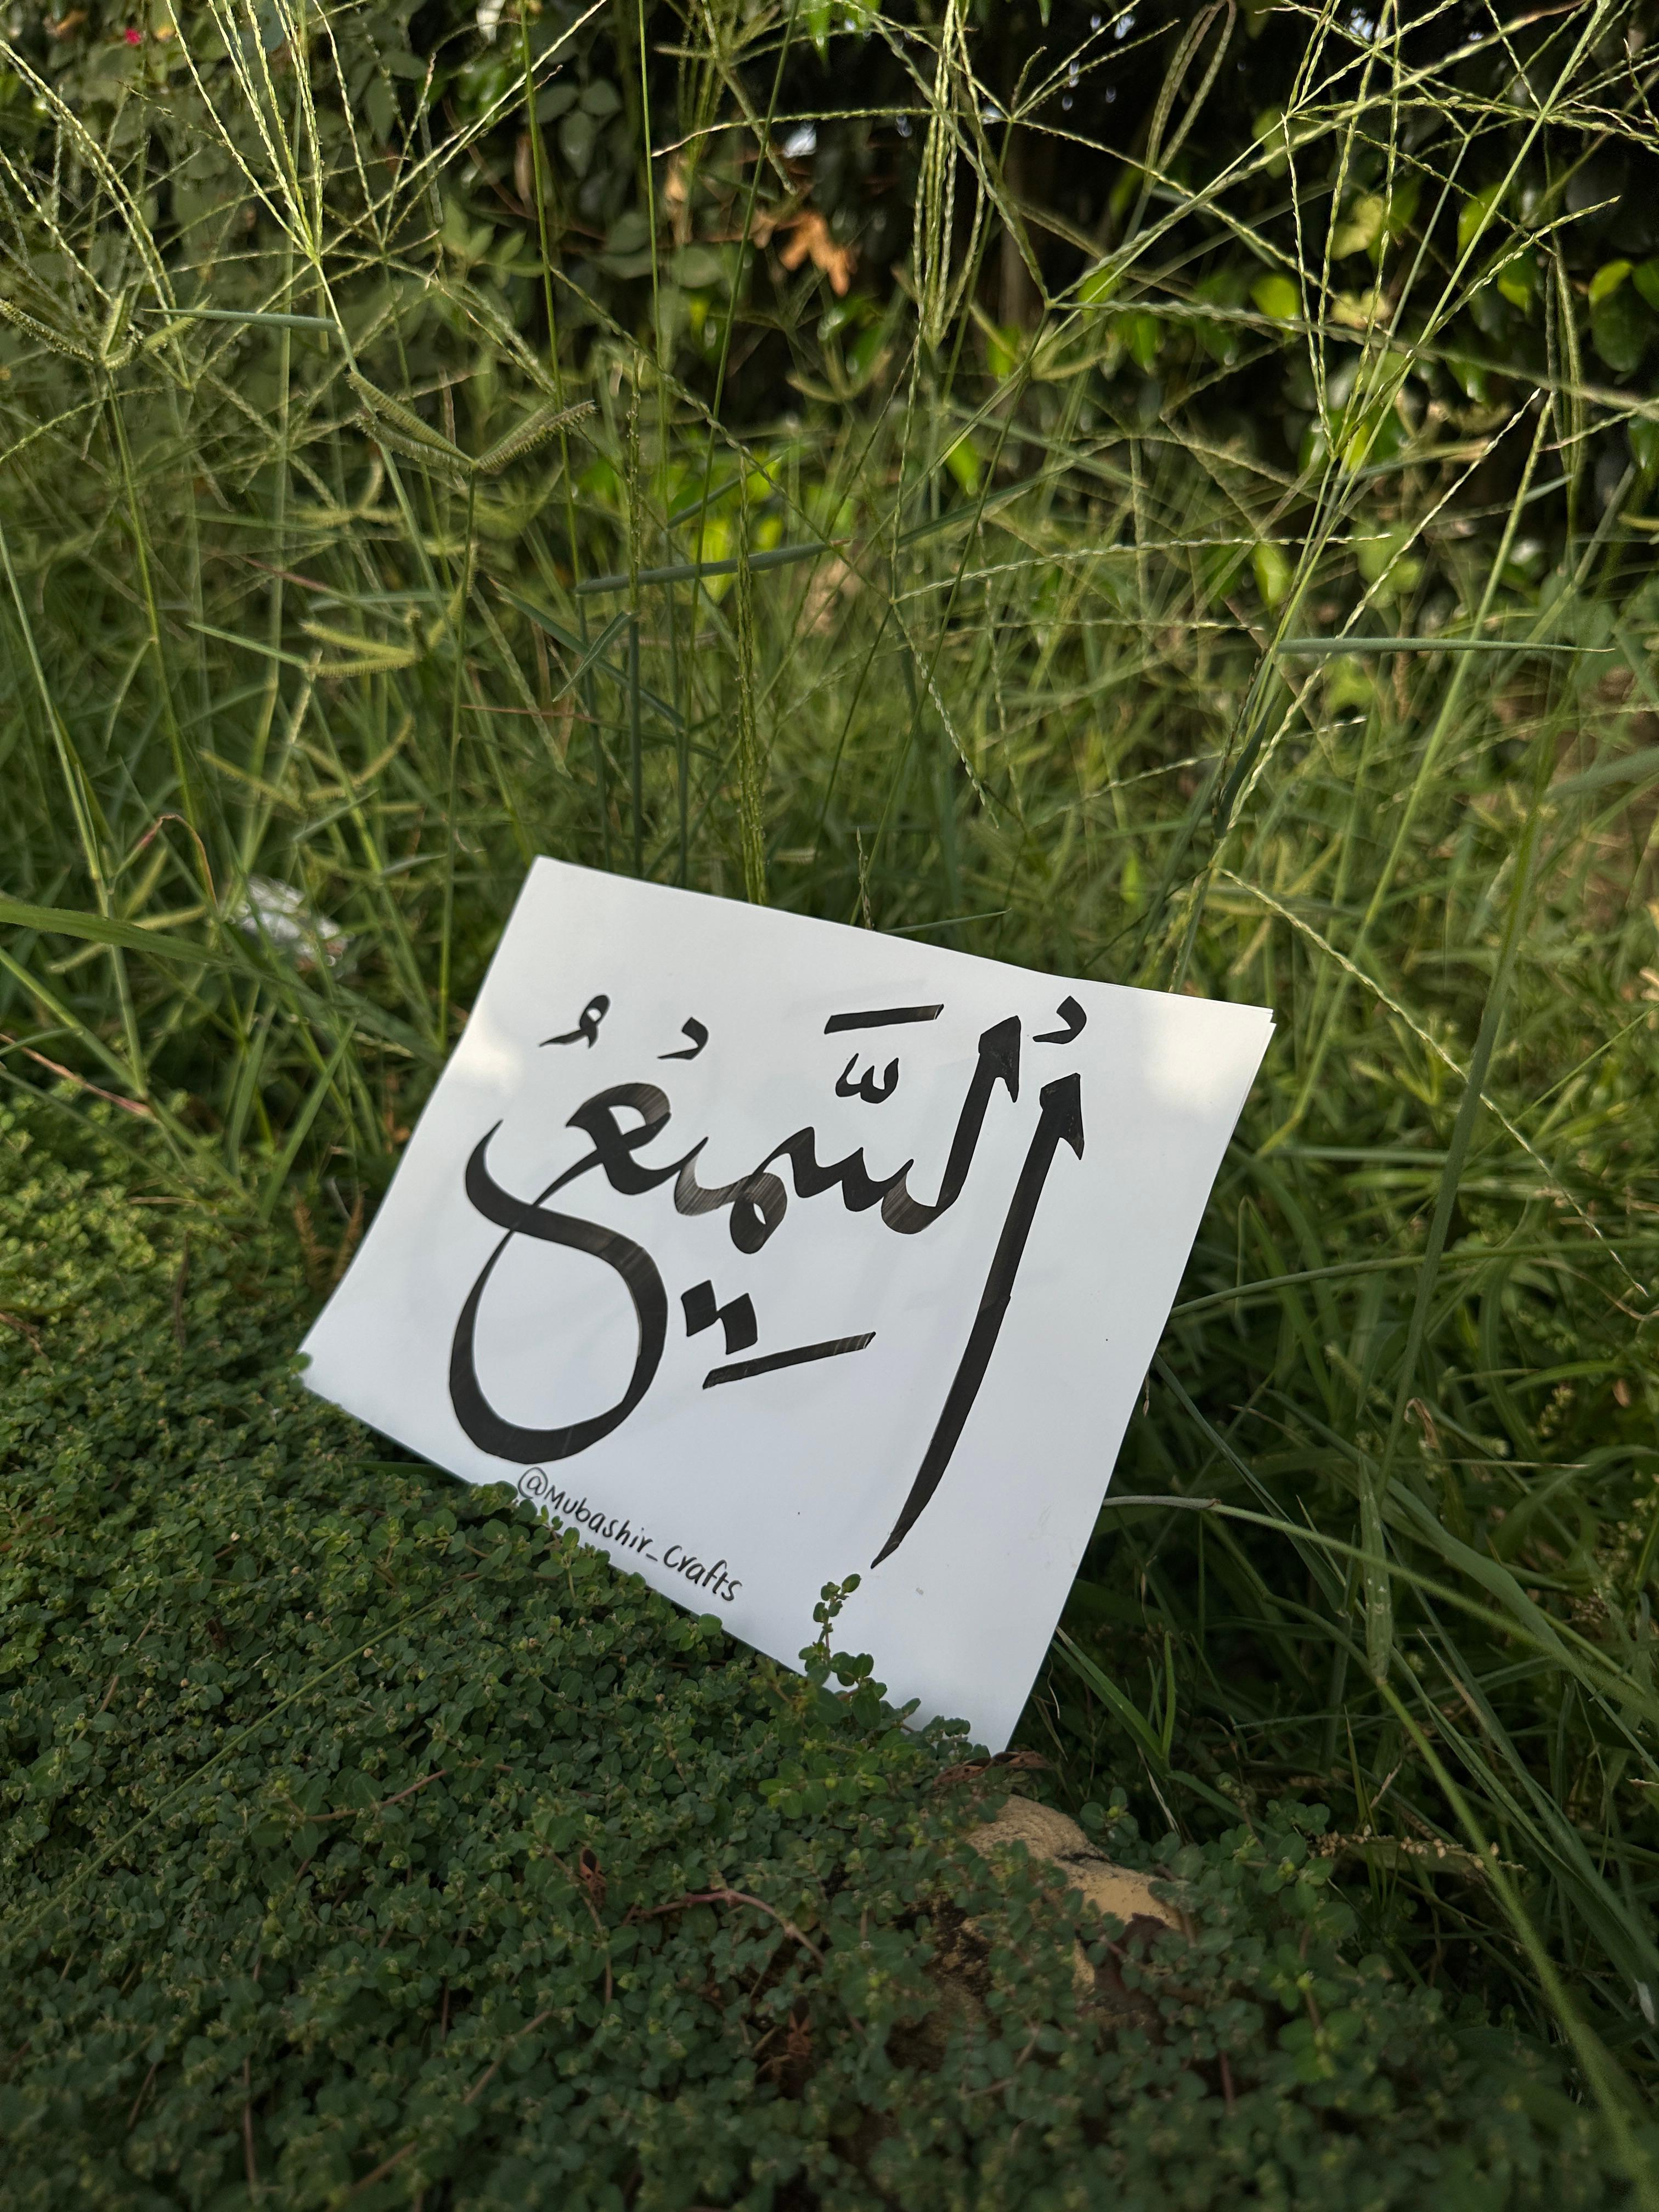 ألسَّمِيعُ
@Mubashir_Crafts